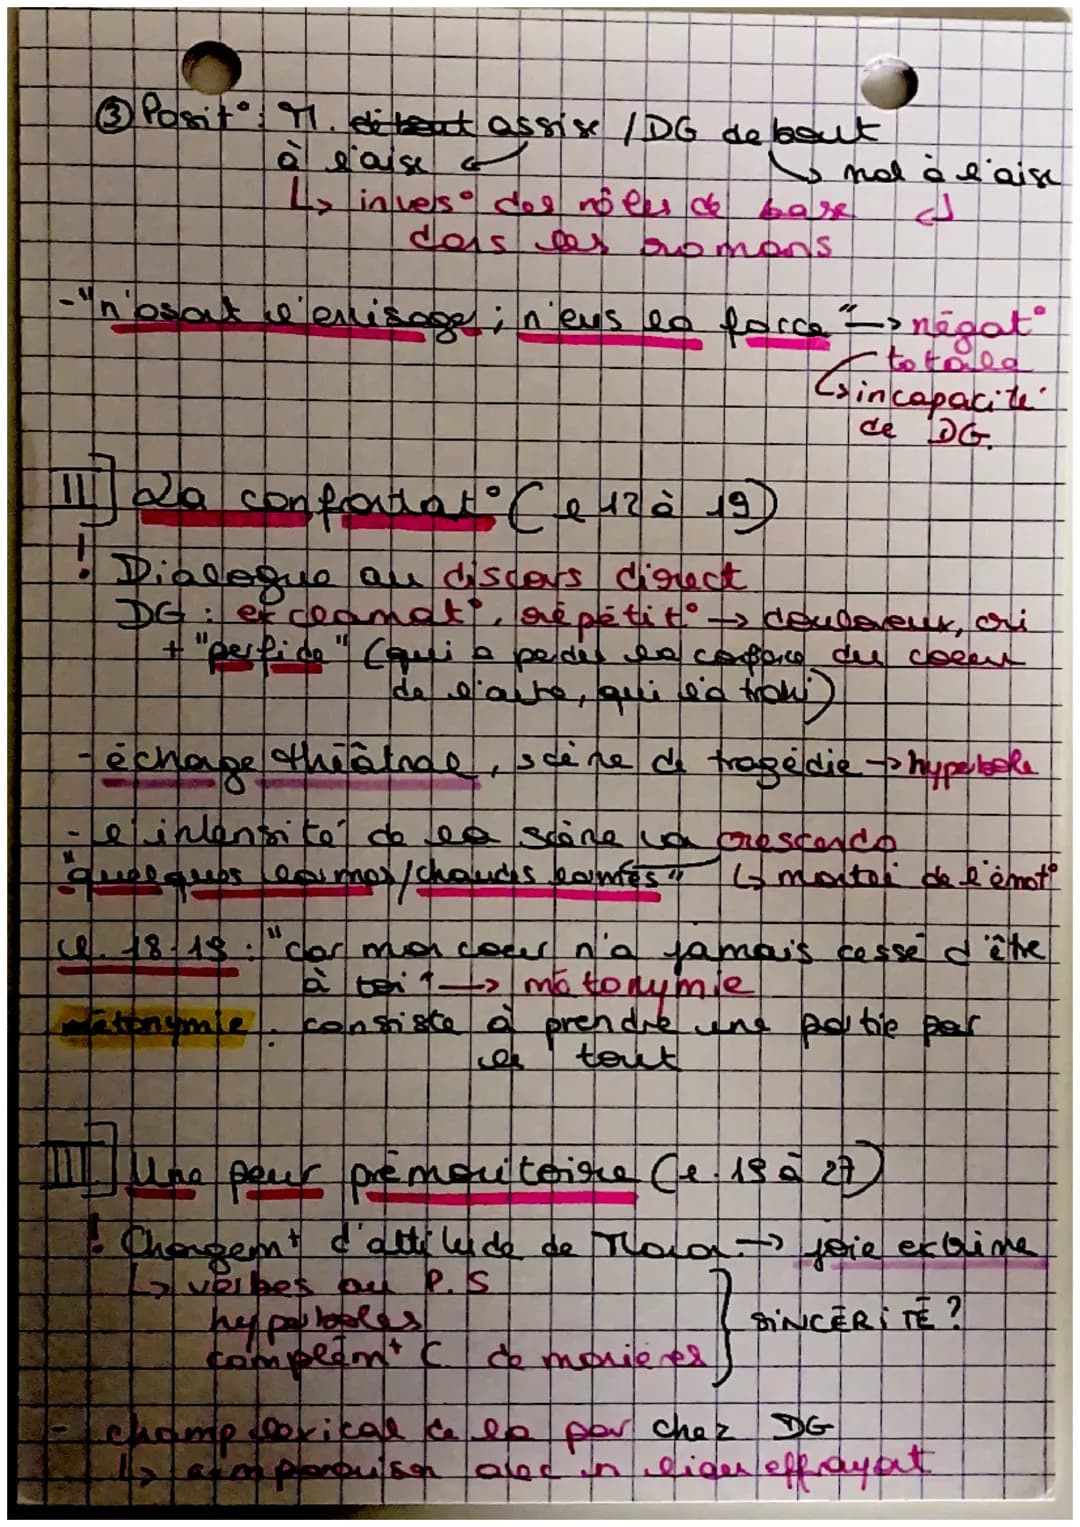 ③ Posit°: M. ditent assise / DG debout
à l'aise ↲ ↳ mal à l'aise
↳ invers° des rôles de base ↲
dans les romans
- "n'osant l'envisager ; n'eus la force" → négat°
totale
↳ incapacité
de DG.
II] La confrontat° (l 12 à 19)
! Dialogue au discours direct
DG : exclamat°, répétit° → douloureux, cri
+ "perfide" (qui a perdu la confiance du coeur
de l'autre, qui l'a trahi)
- échange théâtrale, scène de tragédie → hyperbole
- l'intensité de la scène va crescendo
"quelques larmes/chaudes larmes" ↳ montée de l'émot°
l. 18-19 : "car mon coeur n'a jamais cessé d'être
à toi" → métonymie
métonymie : consiste à prendre une partie par
le tout
III] Une peur prémonitoire (l. 19 à 27)
! Changem^t d'attitude de Manon → joie extrême
↳ verbes au P.S
hyperboles
complém^t C. de manières } SINCÉRITÉ ?
- champ lexical de la peur chez DG
↳ comparaison avec un effrayant